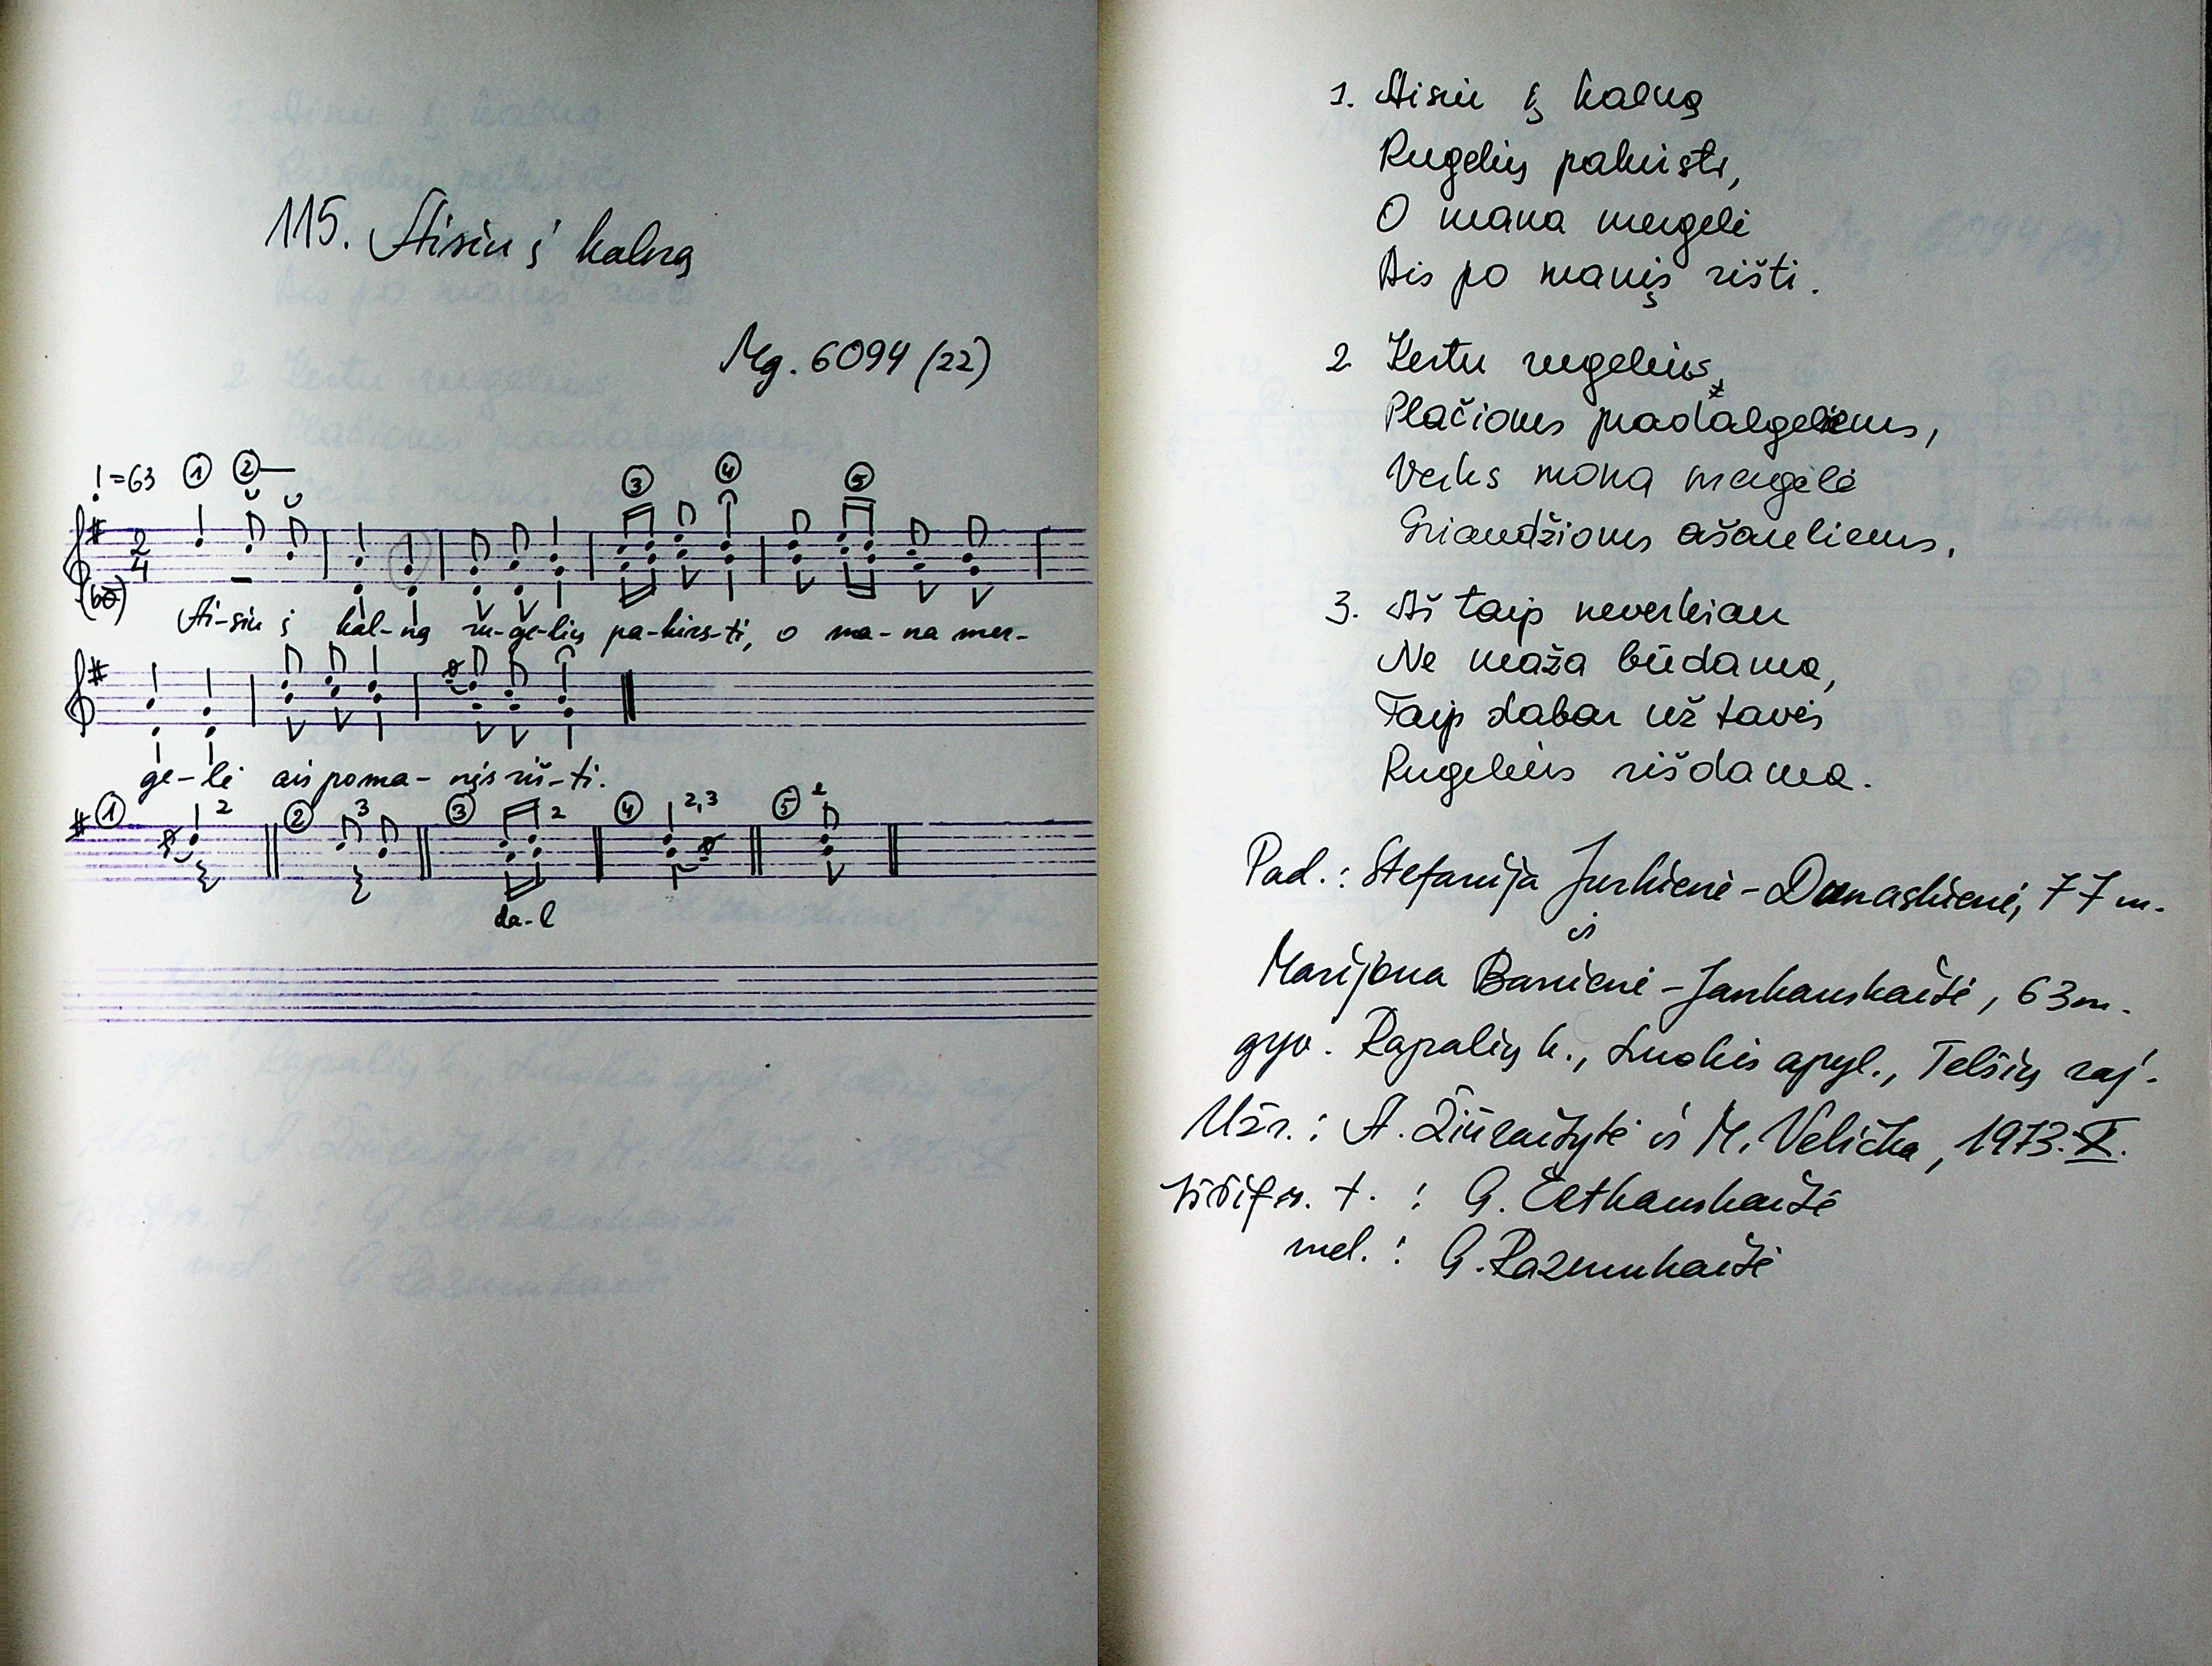 115. Aisiu į kalną
Mg. 6094 (22)
=63 ① ② ③ ④ ⑤
2
4
Ai-siu į kal-ną ru-ge-lių pa-kirs-ti, o ma-na mer-
ge-lė ais po ma-nįs riš-ti.
① 2 ② 3 ③ 2 ④ 2,3 ⑤ 2
da-l
1. Aisiu į kalną
Rugelių pakirsti,
O mana mergelė
Ais po manįs rišti.
2 Kertu rugelius,
Plačioms pradalgelėms,
Verks mona mergelė
Griaudžioms ašarelėms.
3. Aš taip neverkiau
Ne maža būdama,
Taip dabar už tavęs
Rugelius rišdama.
Pad.: Stefanija Jurkienė-Dunaskienė, 77 m.
ir
Marijona Barnienė-Jankauskaitė, 63 m.
gyv. Rapalių k., Luokės apyl., Telšių raj.
Užr.: A. Žiūraitytė ir M. Velička, 1973.X.
Iššifr. t. : G. Četkauskaitė
mel. : G. Razmukaitė